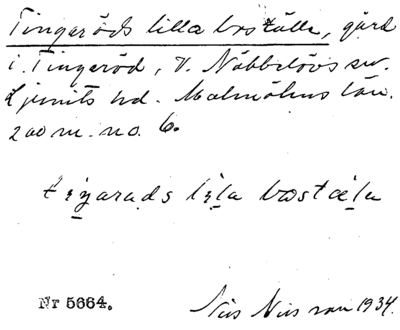 Tingaröds lilla boställe, gård
i Tingaröd, V. Nöbbelövs sn.
Ljunits hd. Malmöhus län.
200 m. no. 6.
lila
Nr 5664.
Nils Nilsson 1934.